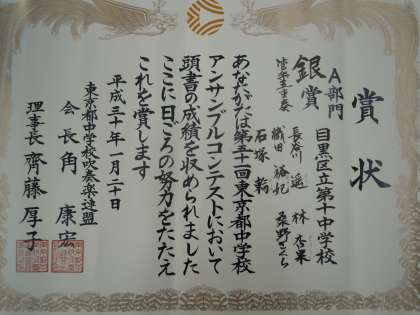 賞状
A部門
目黒区立第十中学校
銀賞
管楽五重奏
長谷川 遥
林 杏果
織田 裕妃
桑野さくら
石塚 輪
あなたがたは第五十一回東京都中学校
アンサンブルコンテストにおいて
頭書の成績を収められました
ここに日ごろの努力をたたえ
これを賞します
平成三十年一月二十日
東京都中学校吹奏楽連盟
会長 角 康宏
理事長 齊藤 厚子